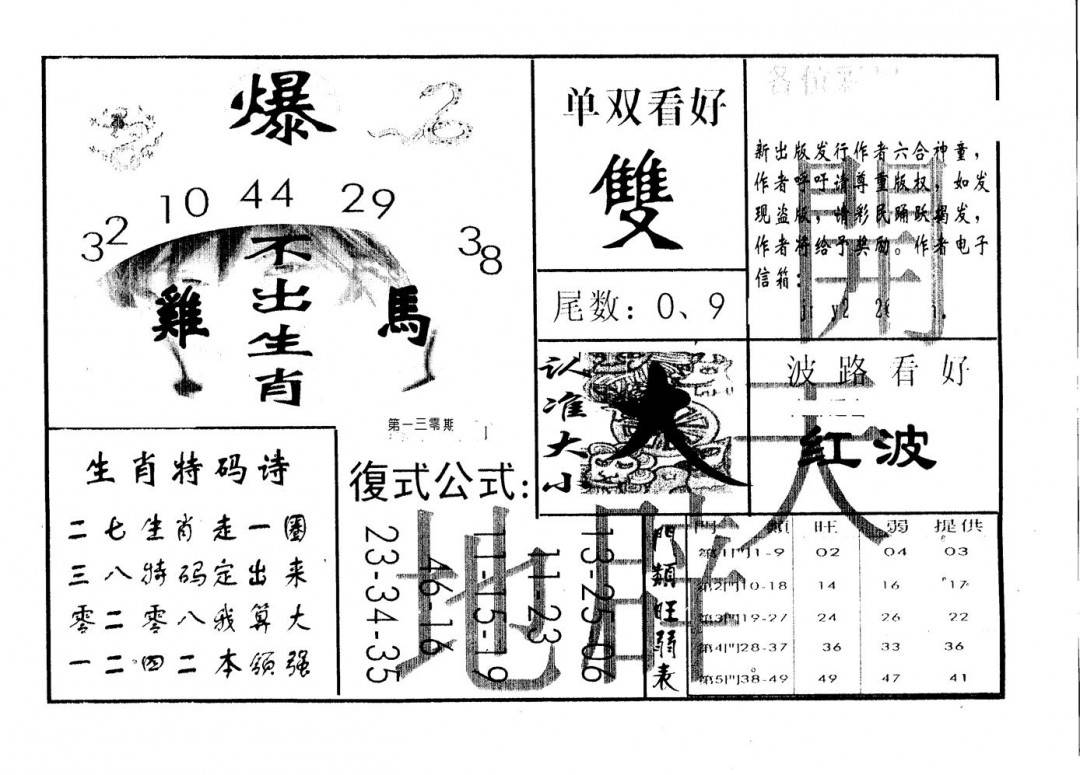 爆
32 10 44 29 38
不出生肖
雞 馬
第一三零期
单双看好
雙
尾数：0、9
各位
新出版发行作者六合神童，
作者呼吁请尊重版权，如发
现盗版，请彩民踊跃揭发，
作者将给予奖励。作者电子
信箱：
认准大小
大
波路看好
红波
生肖特码诗
二七生肖走一圈
三八特码定出来
零二零八我算大
一二四二本领强
復式公式：
13-25-06
11-23
11-15-19
46-16
23-34-35
門類旺弱表
門 類 旺 弱 提供
第1門1-9 02 04 03
第2門10-18 14 16 17
第3門19-27 24 26 22
第4門28-37 36 33 36
第5門38-49 49 47 41
天
地